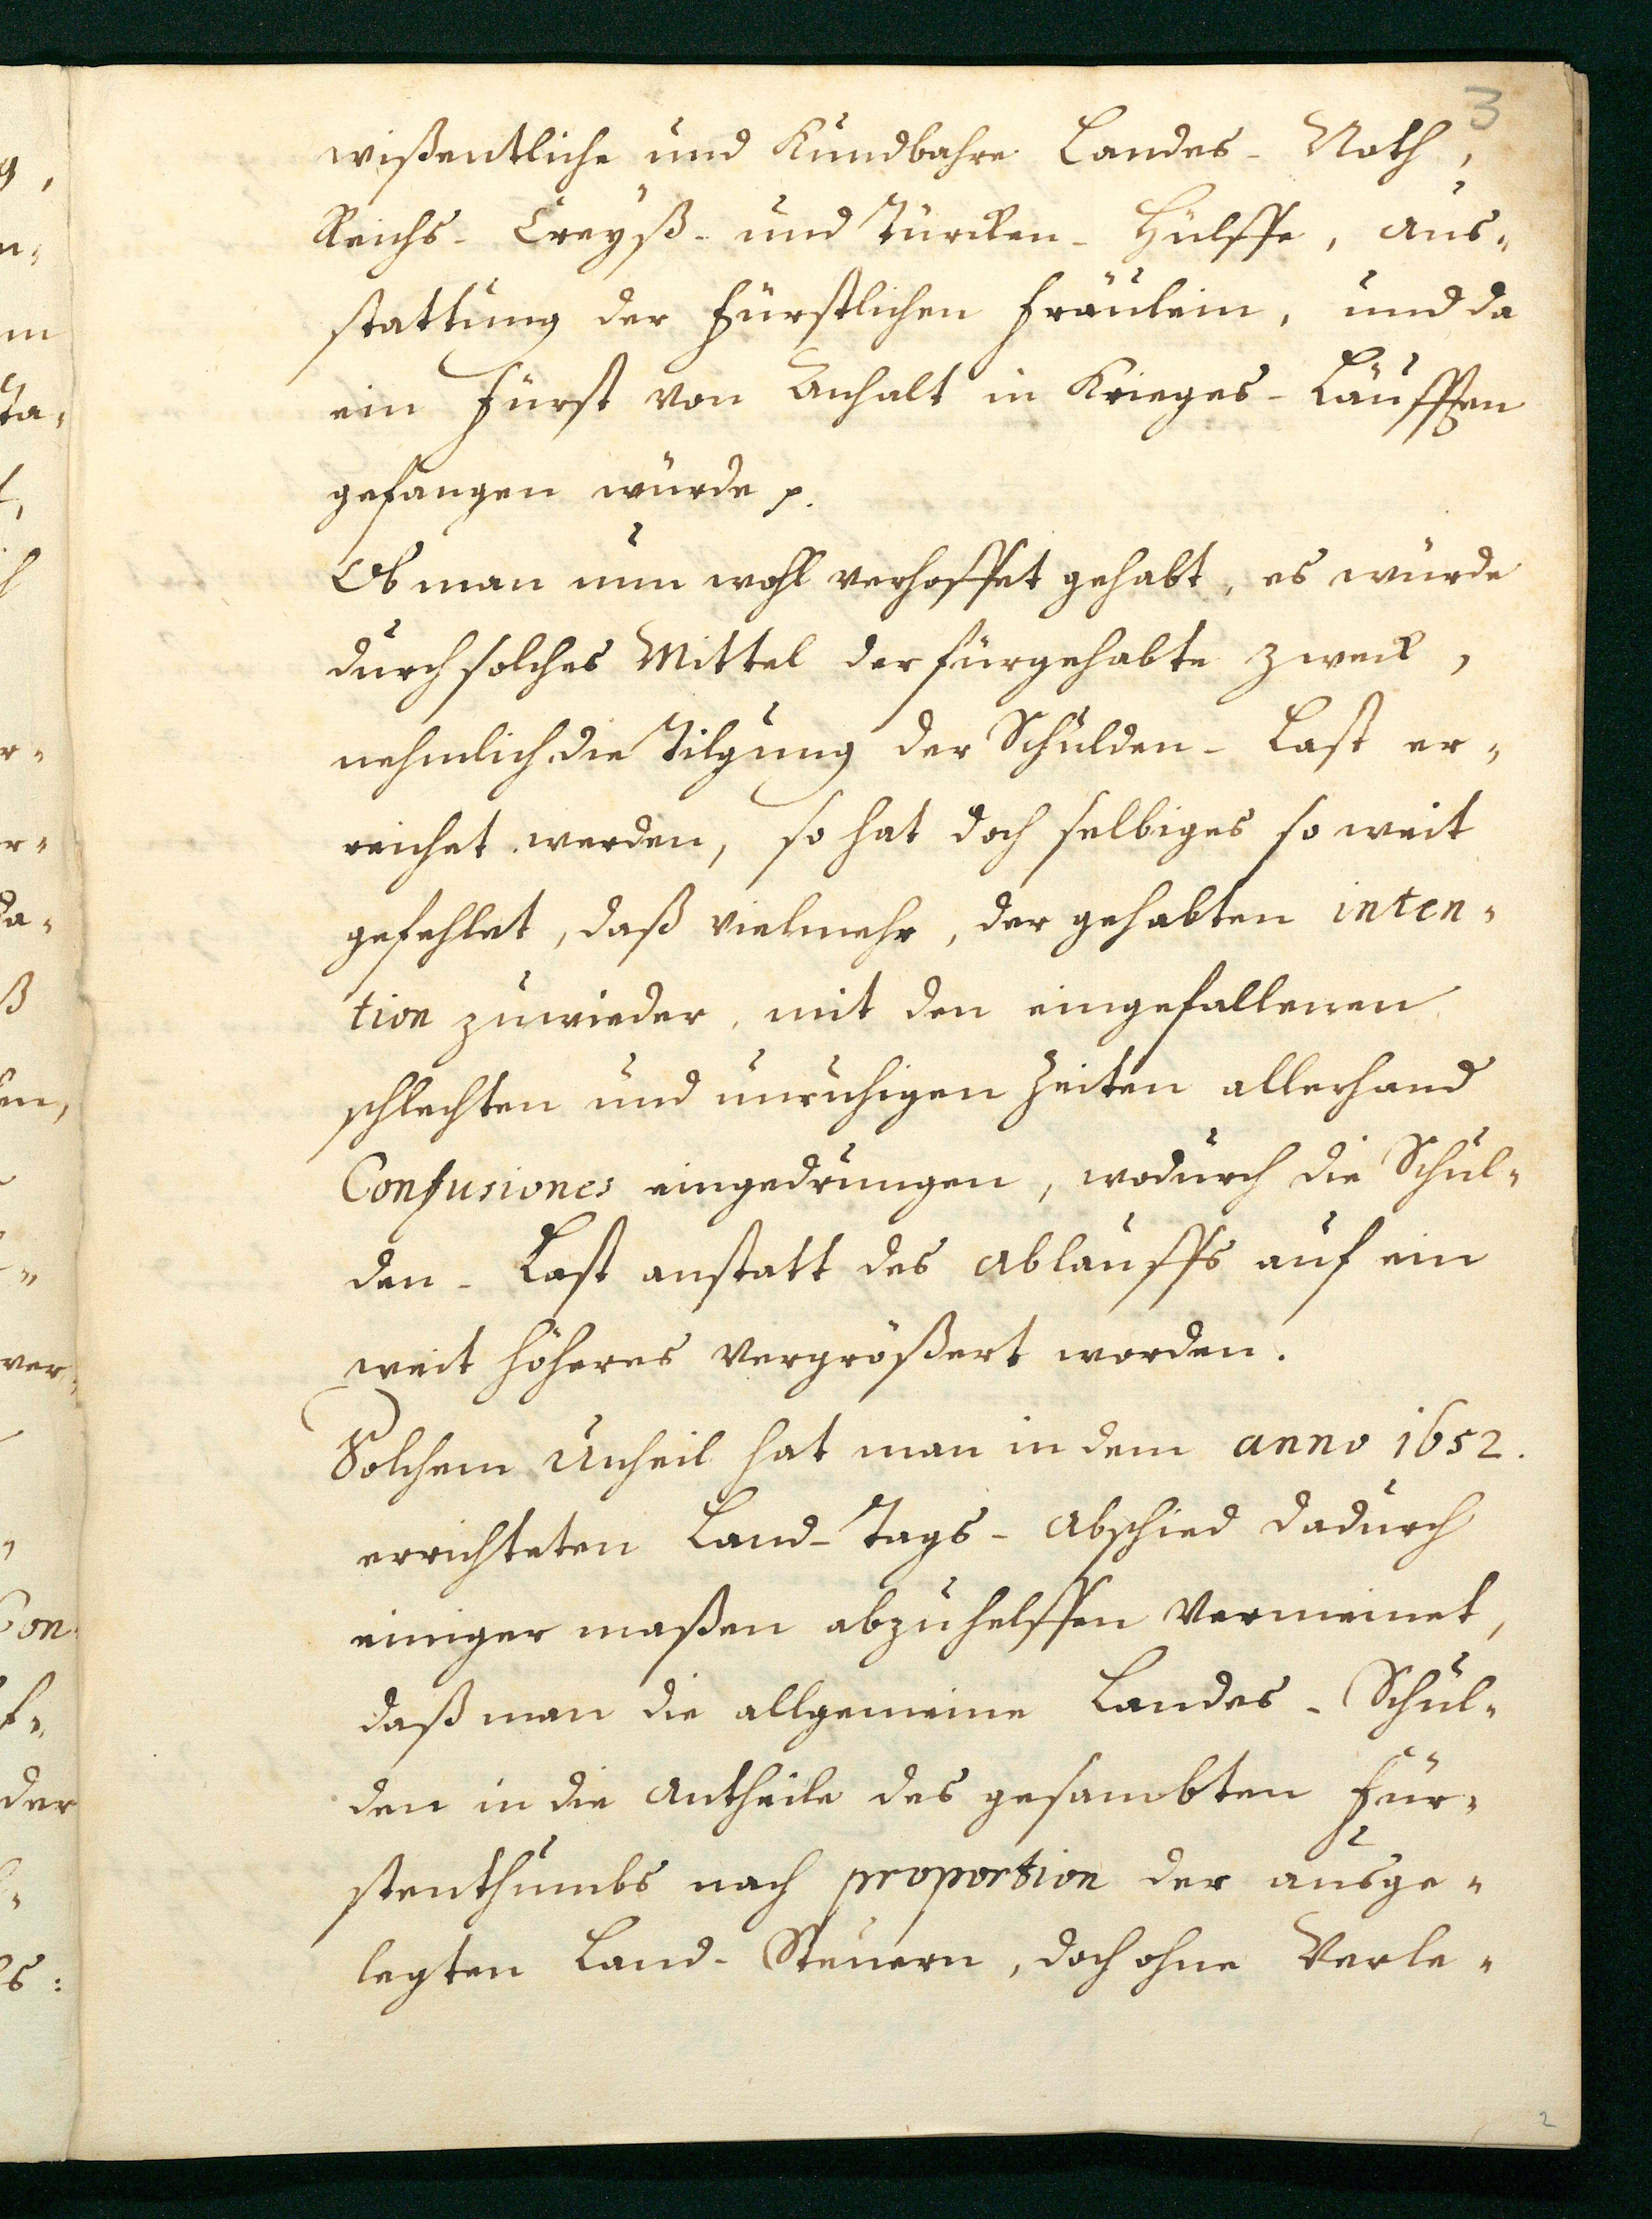 3
wißentliche und Kundbahre Landes- Noth,
Reichs- Creyß- und Türcken- Hülffe, Aus-
stattung der Fürstlichen Fräulein, und da
ein Fürst von Anhalt in Krieges- Läufften
gefangen würde p.
Ob man nun wohl verhoffet gehabt, es würde
durch solches Mittel der fürgehabte Zweck,
nehmlich die Tilgung der Schulden- Last er-
reichet werden, so hat doch selbiges so weit
gefehlet, daß vielmehr, der gehabten inten-
tion zuwieder, mit den eingefallenen
schlechten und unruhigen Zeiten allerhand
Confusiones eingedrungen, wodurch die Schul-
den- Last anstatt des Ablauffs auf ein
weit höheres vergrößert worden.
Solchem Unheil hat man in dem anno 1652.
errichteten Land- Tags- Abschied dadurch
einiger maßen abzuhelffen vermeinet,
daß man die allgemeine Landes- Schul-
den in die Antheile des gesambten Für-
stenthumbs nach proportion der ausge-
legten Land- Steuern, doch ohne Verle-
2